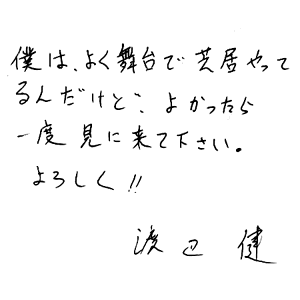 僕は、よく舞台で芝居やって
るんだけど、よかったら
一度見に来て下さい。
よろしく!!
渡辺 健